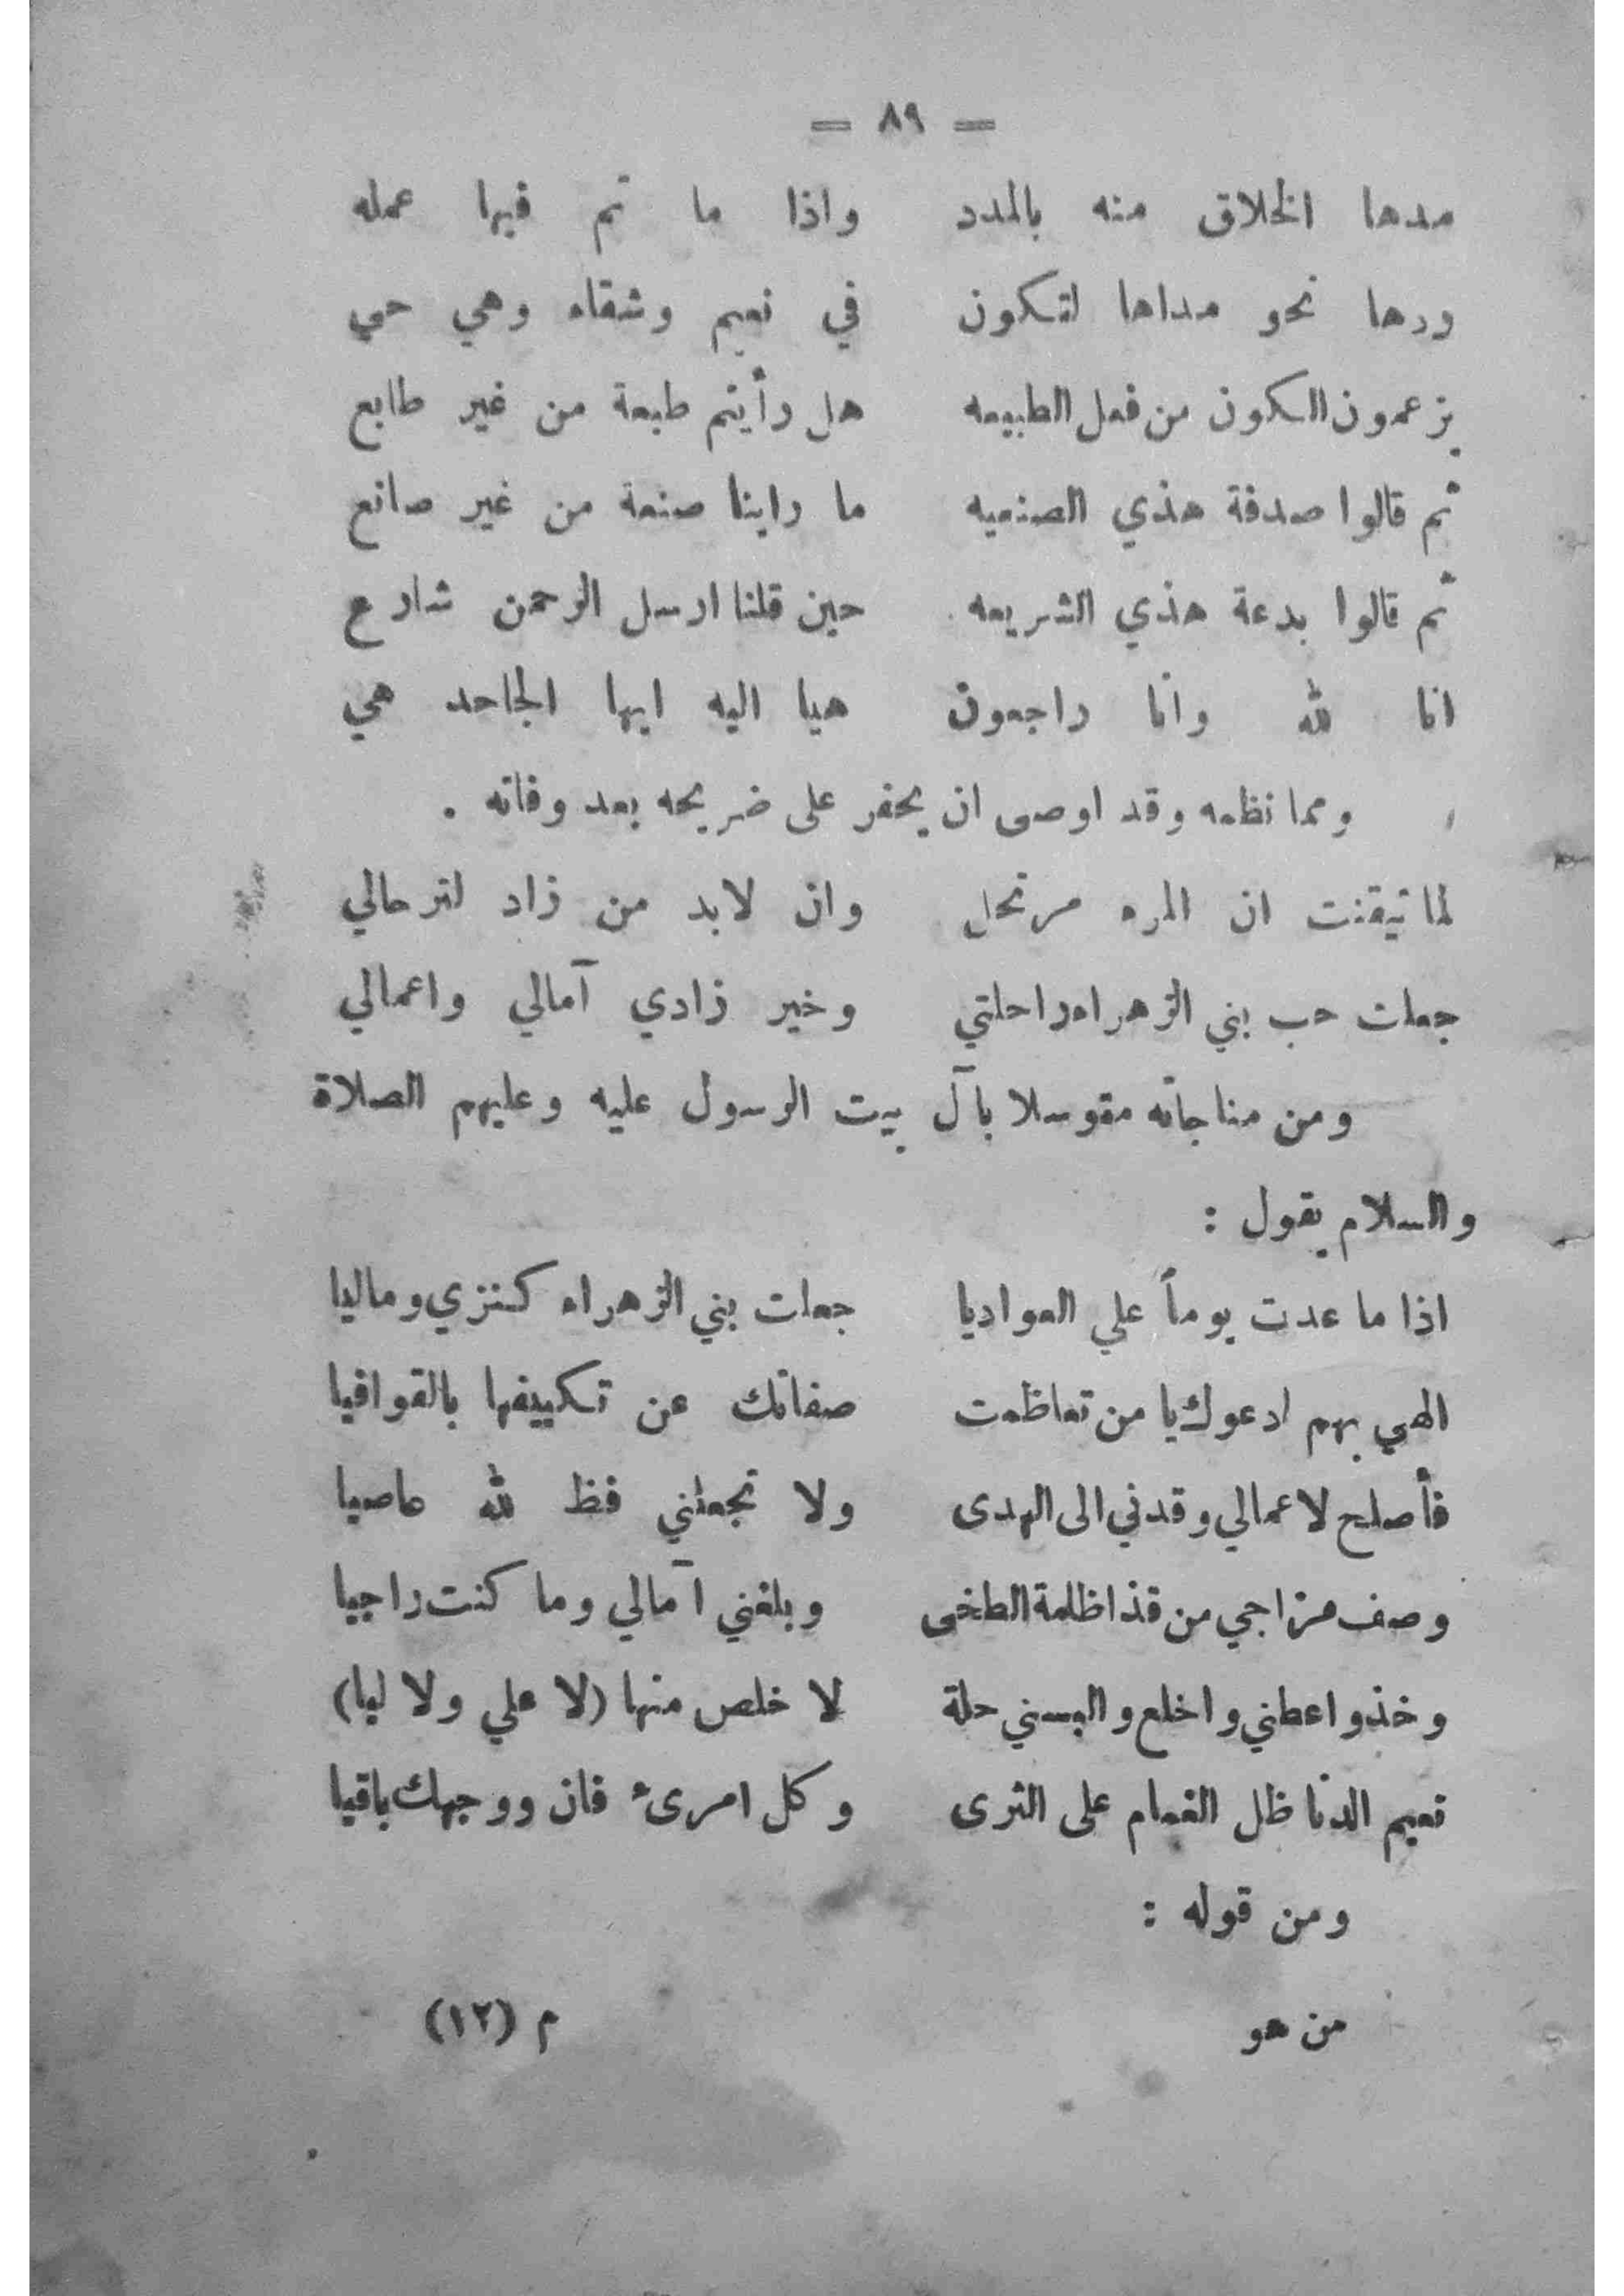 = ٨٩ =
مدها الخلاق منه بالمدد واذا ما تم فيها عمله
ردها نحو مداها لتكون في نعيم وشقاء وهي حي
يزعمون الكون من فعل الطبيعه هل رأيتم طبعة من غير طابع
ثم قالوا صدفة هذي الصنعيه ما راينا صنعة من غير صانع
ثم قالوا بدعة هذي الشريعه حين قلنا ارسل الرحمن شارع
انا لله وانا راجعون هيا اليه ايها الجاحد هي
ومما نظمه وقد اوصى ان يحفر على ضريحه بعد وفاته .
لما تيقنت ان المرء مرتحل وان لابد من زاد لترحالي
جعلت حب بني الزهراء راحلتي وخير زادي آمالي واعمالي
ومن مناجاته متوسلا بآل بيت الرسول عليه وعليهم الصلاة
والسلام يقول :
اذا ما عدت يوماً علي العواديا جعلت بني الزهراء كنزي وماليا
الهي بهم ادعوك يا من تعاظمت صفاتك عن تكييفها بالقوافيا
فأصلح لاعمالي وقدني الى الهدى ولا تجعلني فظ لله عاصيا
وصف مزاجي من قذا ظلمة الطخى وبلغني آمالي وما كنت راجيا
وخذ واعطني واخلع والبسني حلة لا خلص منها (لا علي ولا ليا)
نعيم الدنا ظل الغمام على الثرى وكل امرىء فان ووجهك باقيا
ومن قوله :
من هو م (١٢)